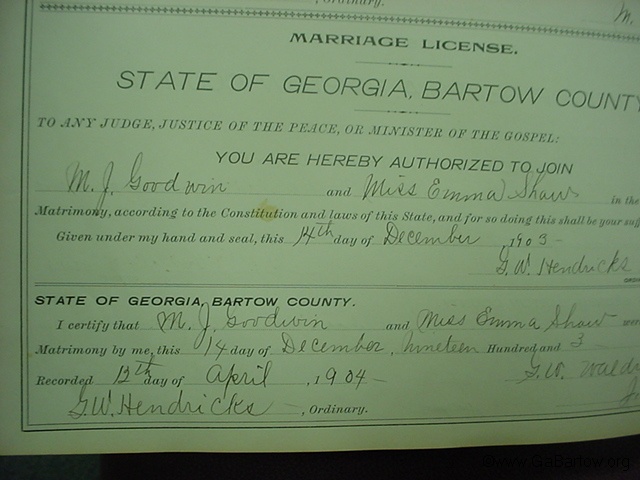 , Ordinary.
M.
MARRIAGE LICENSE.
STATE OF GEORGIA, BARTOW COUNTY
TO ANY JUDGE, JUSTICE OF THE PEACE, OR MINISTER OF THE GOSPEL:
YOU ARE HEREBY AUTHORIZED TO JOIN
M. J. Goodwin and Miss Emma Shaw in the
Matrimony, according to the Constitution and laws of this State, and for so doing this shall be your suf
Given under my hand and seal, this 14th day of December, 1903-
G. W. Hendricks
STATE OF GEORGIA, BARTOW COUNTY.
I certify that M. J. Goodwin and Miss Emma Shaw were
Matrimony by me, this 14 day of December, nineteen Hundred and 3
Recorded 12th day of April, 1904- G. W.
G. W. Hendricks, Ordinary.
www.GaBartow.org